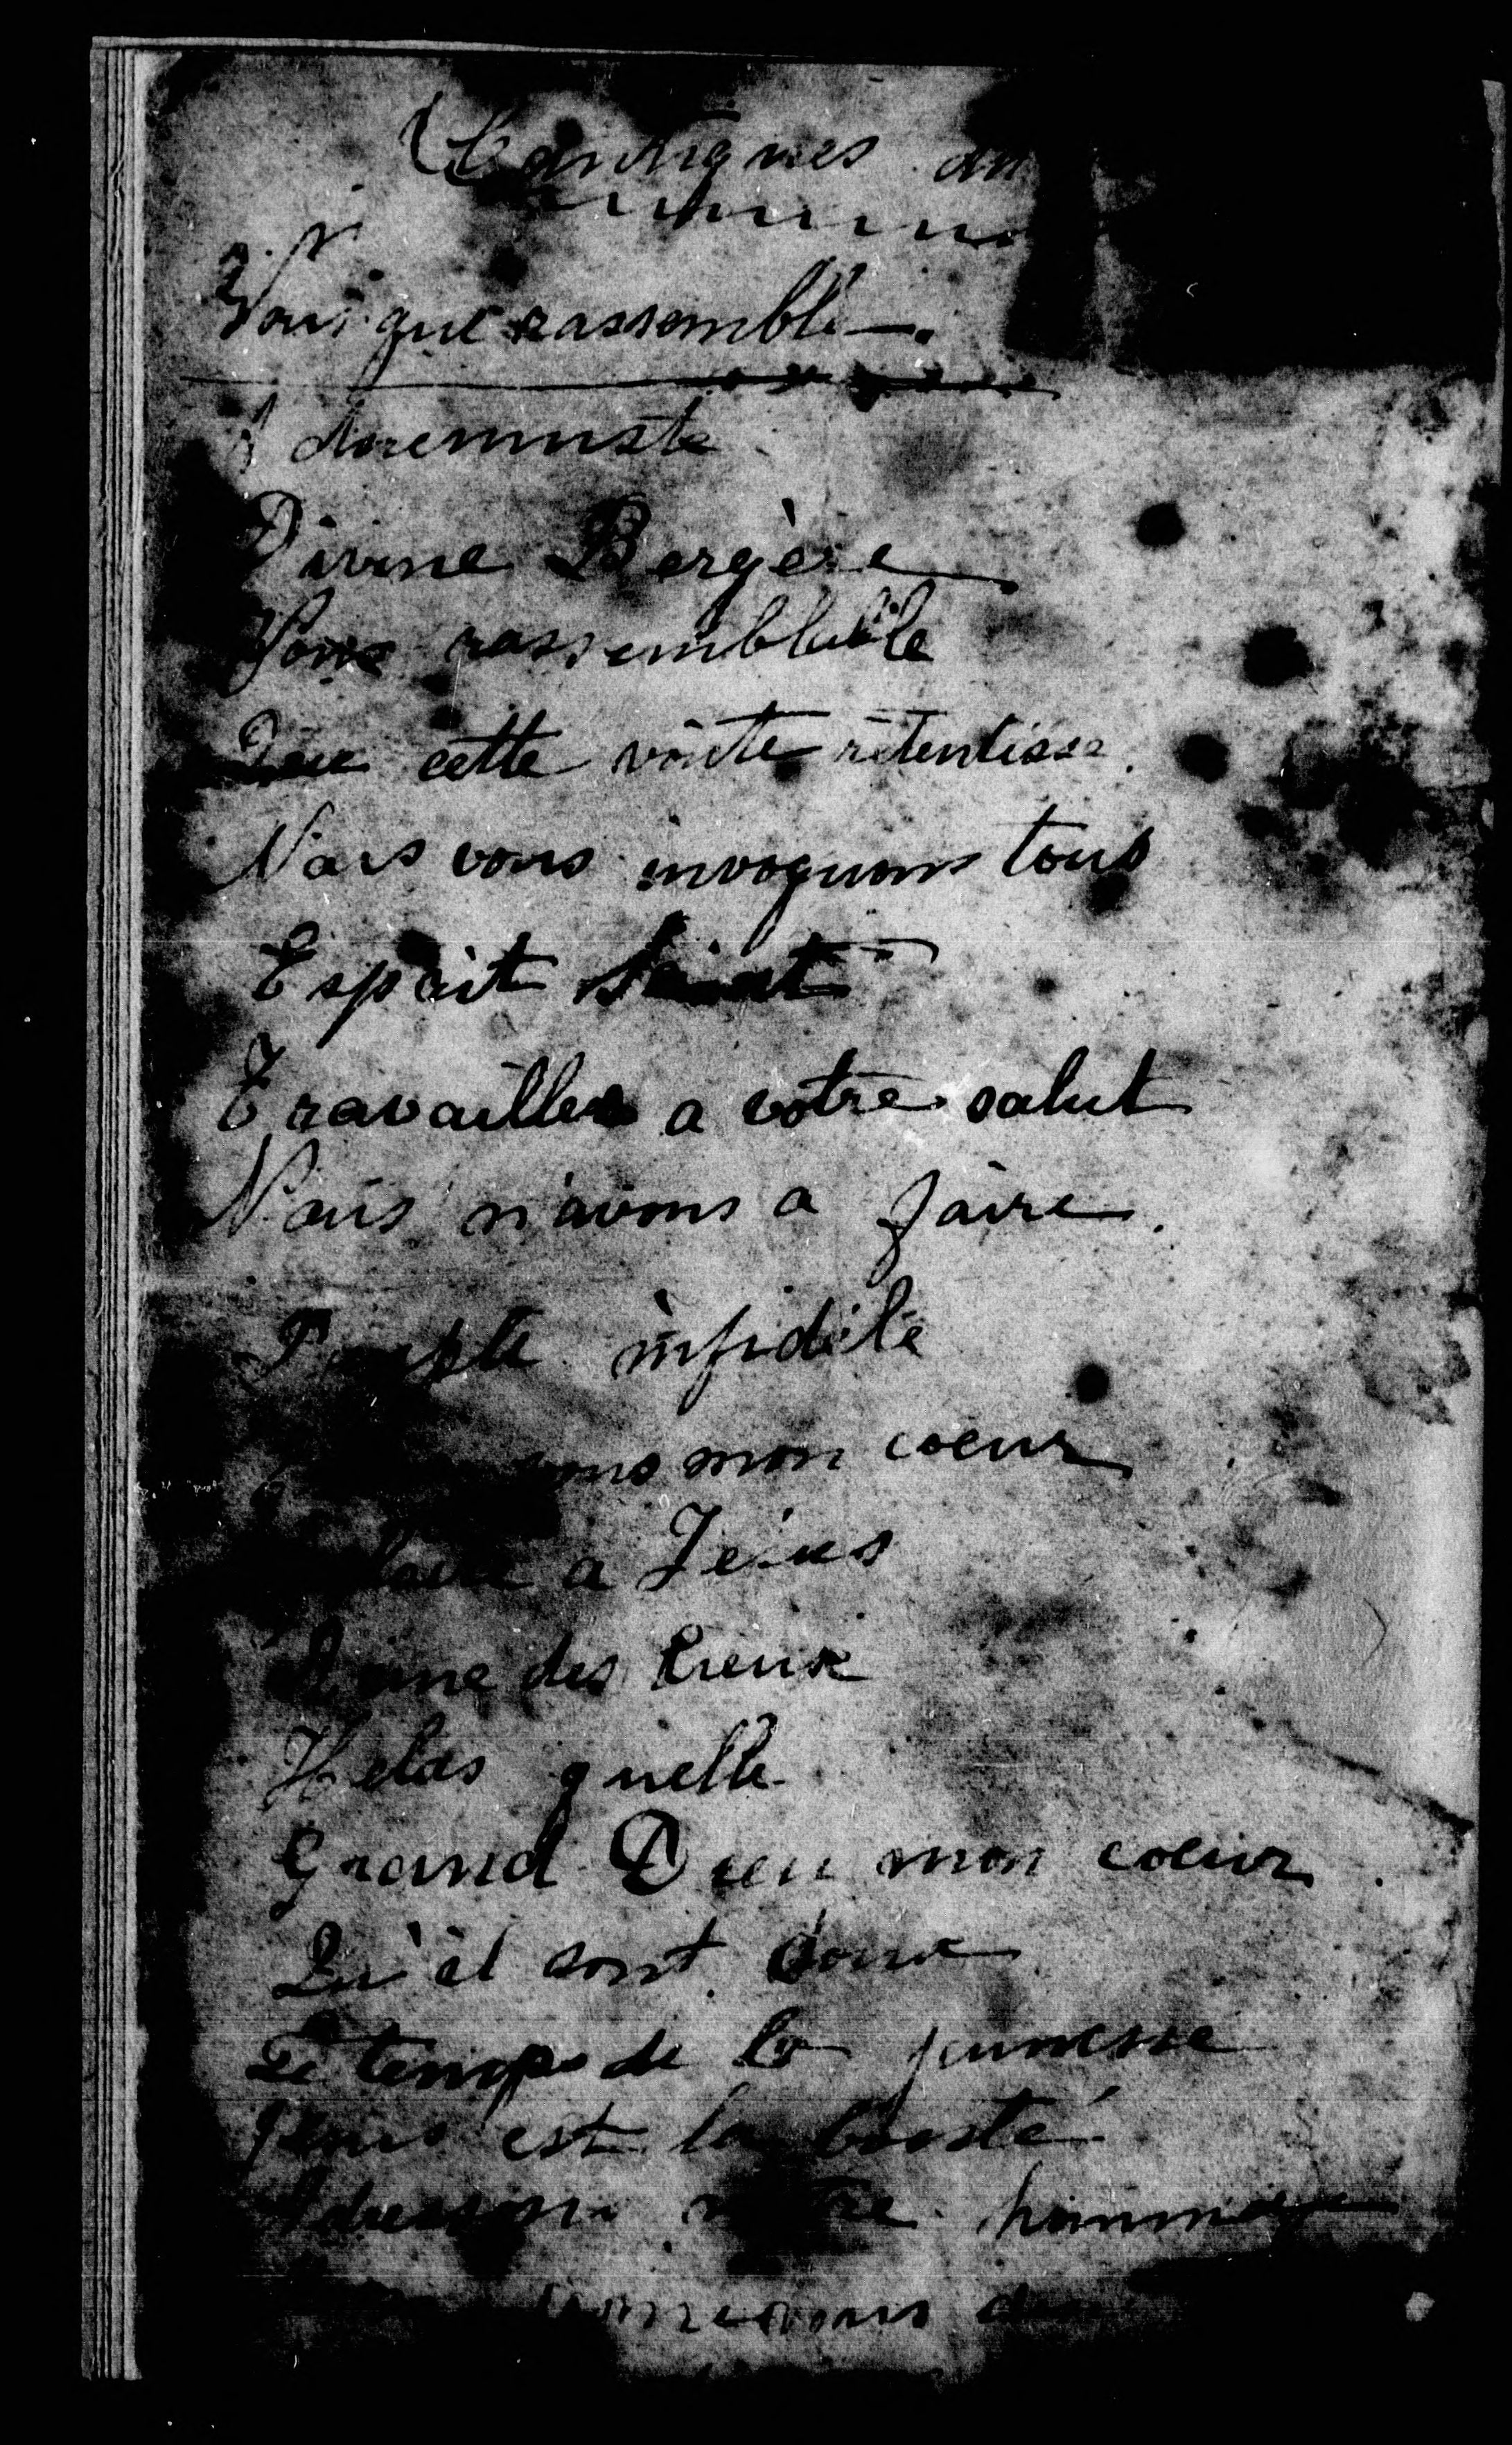 Cantiques du
Vous que rassemble
Adoremuste
Divine Bergère
Vous rassemblable
Que cette voûte retentisse.
Nous vous invoquons tous
Esprit Saint
Travaillez a votre salut
Nous n'avons a faire.
Peuple infidèle
vous mon coeur
a Jésus
Reine des Cieux
Helas quelle
Grand Dieu mon coeur
Qu'il sont doux
Le temps de la jeunesse
est la bonté
Adressons notre hommage
vous